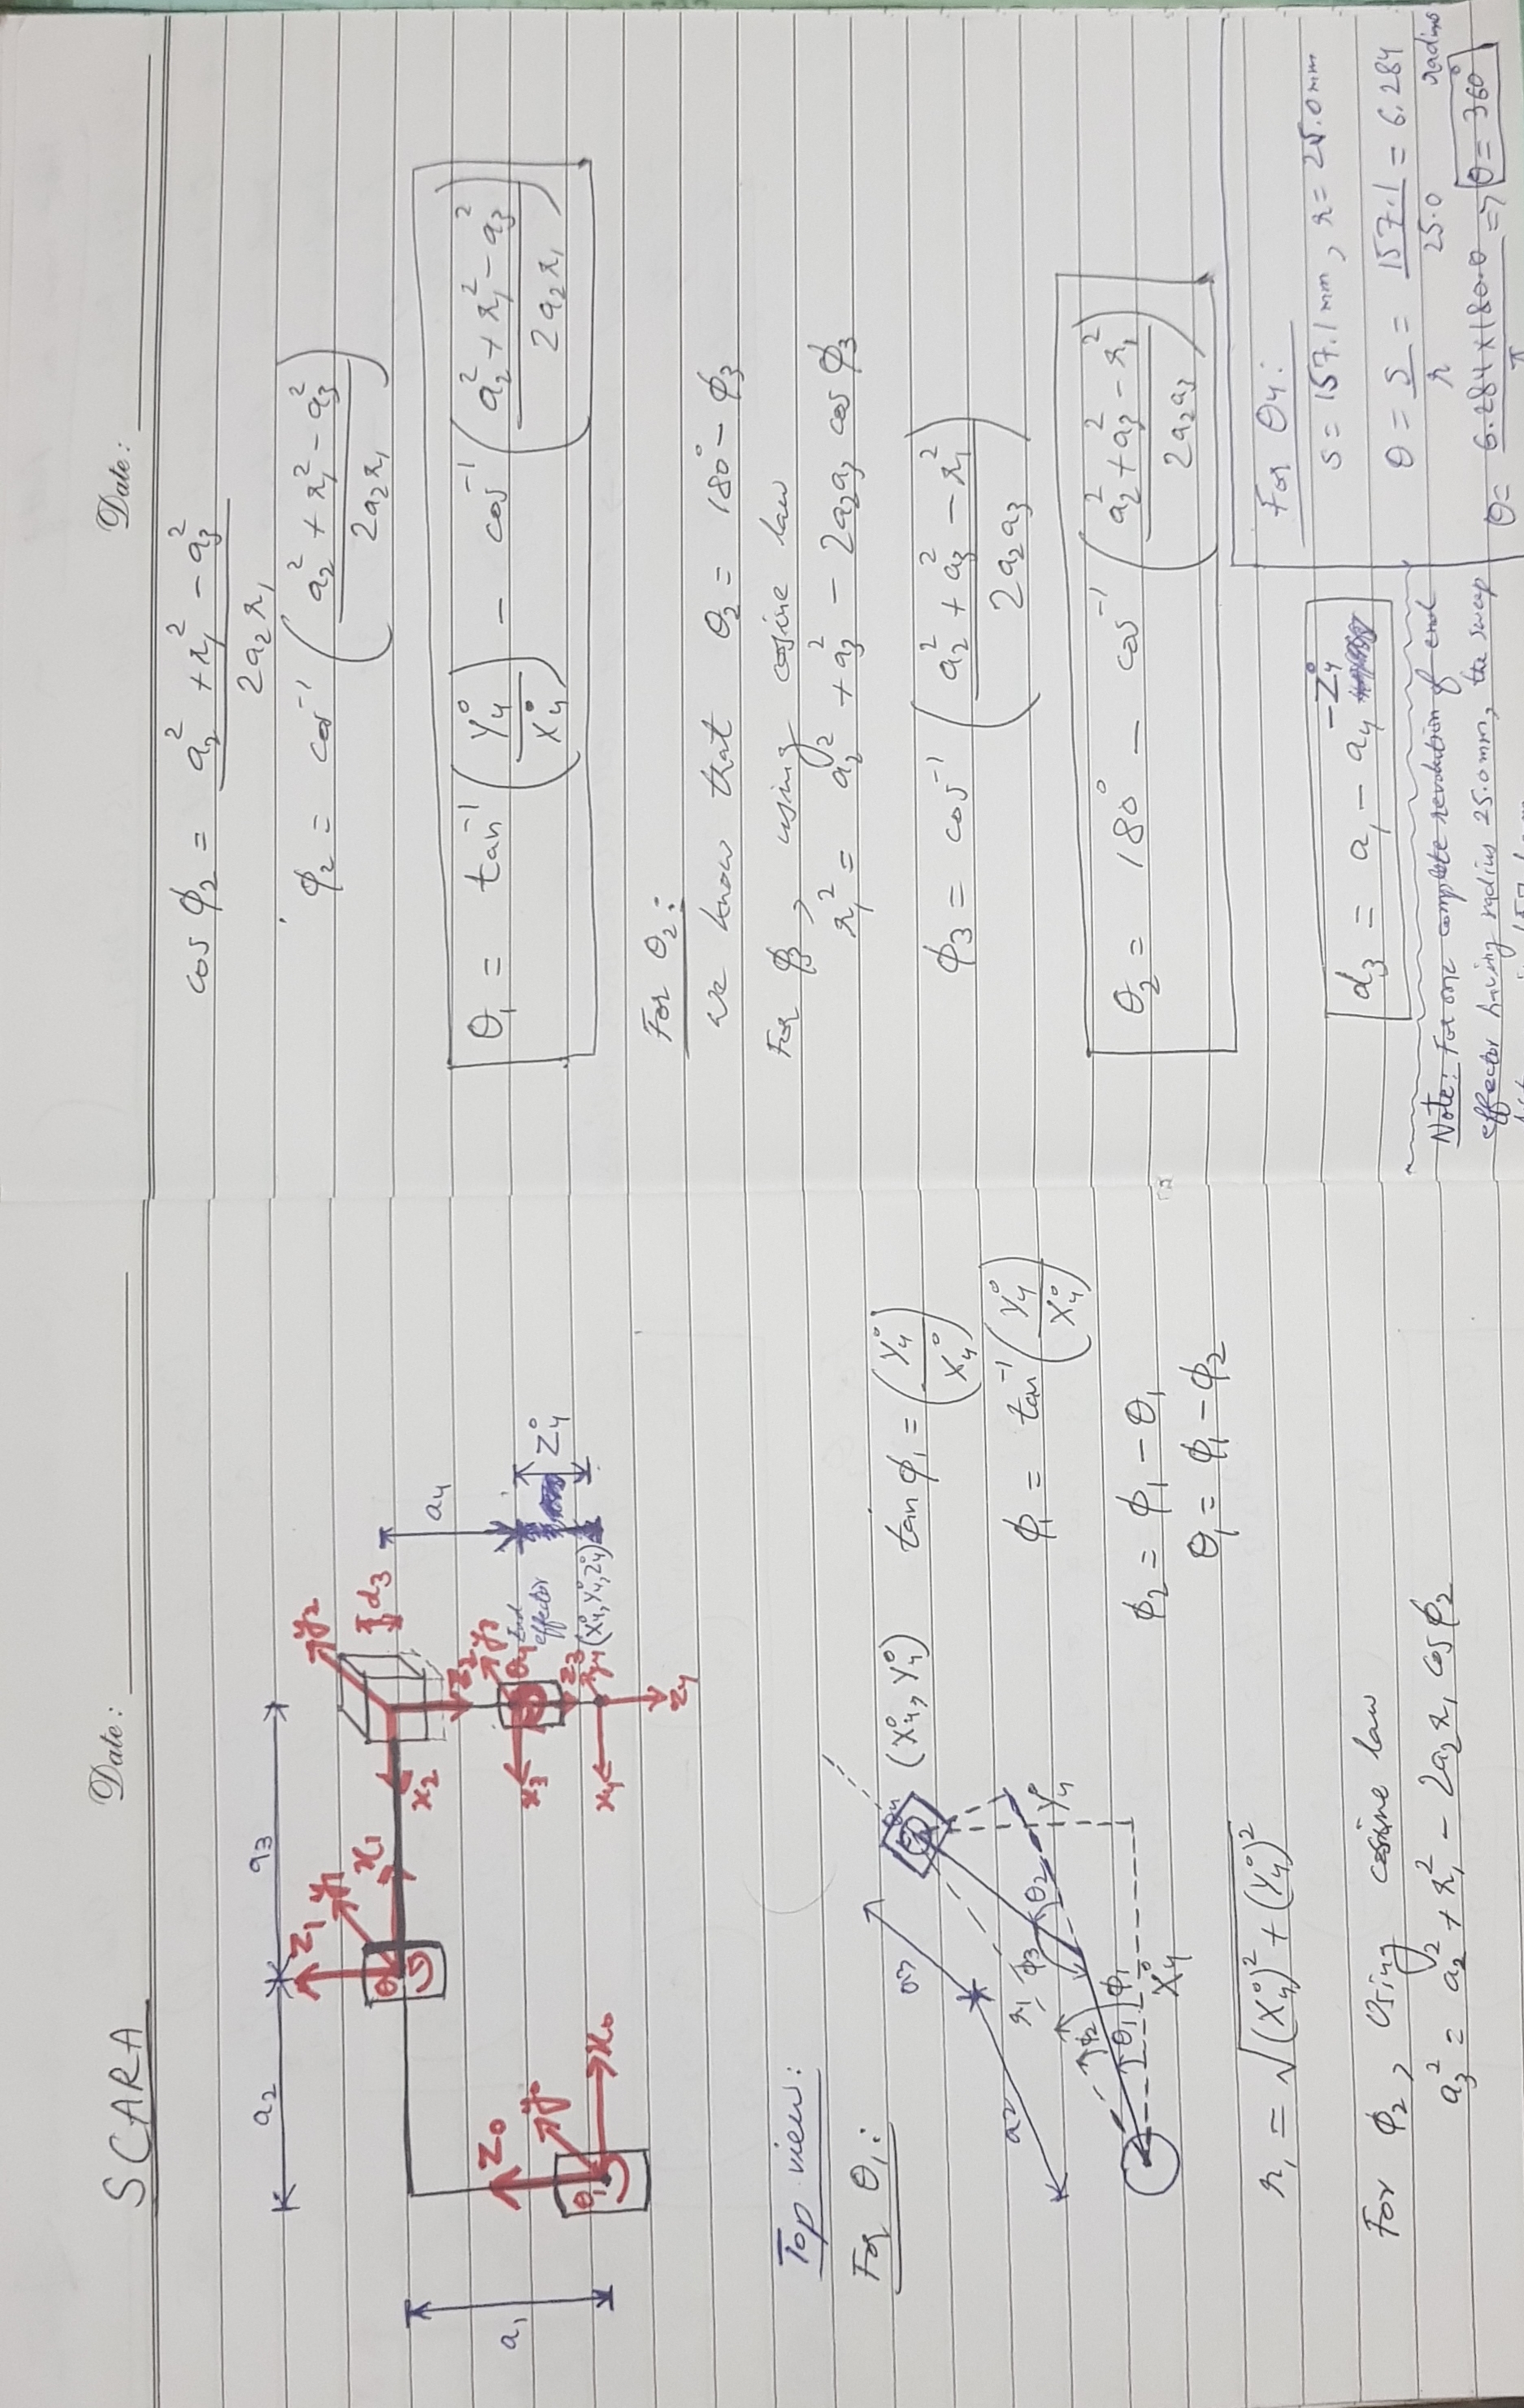 SCARA
Date:
a₂ a₃
z₁ y₁ x₁ θ₂
y₂ x₂ z₂ d₃
a₁ a₄
z₀ y₀ x₀ θ₁
y₃ x₃ z₃ θ₄
End
effector
Z₄⁰
x₄ y₄ (X₄⁰, Y₄⁰, Z₄⁰)
z₄
Top view:
For θ₁:
a₃ θ₄ (X₄⁰, Y₄⁰)
a₂ r₁ φ₃ θ₂ Y₄⁰
φ₂ θ₁ φ₁
X₄⁰
tan φ₁ = (Y₄⁰ / X₄⁰)
φ₁ = tan⁻¹ (Y₄⁰ / X₄⁰)
φ₂ = φ₁ - θ₁
θ₁ = φ₁ - φ₂
r₁ = √((X₄⁰)² + (Y₄⁰)²)
For φ₂, Using cosine law
a₃² = a₂² + r₁² - 2a₂r₁ cos φ₂
Date:
cos φ₂ = (a₂² + r₁² - a₃²) / 2a₂r₁
φ₂ = cos⁻¹ ((a₂² + r₁² - a₃²) / 2a₂r₁)
θ₁ = tan⁻¹ (Y₄⁰ / X₄⁰) - cos⁻¹ ((a₂² + r₁² - a₃²) / 2a₂r₁)
For θ₂:
we know that θ₂ = 180° - φ₃
For φ₃, using cosine law
r₁² = a₂² + a₃² - 2a₂a₃ cos φ₃
φ₃ = cos⁻¹ ((a₂² + a₃² - r₁²) / 2a₂a₃)
θ₂ = 180° - cos⁻¹ ((a₂² + a₃² - r₁²) / 2a₂a₃)
d₃ = a₁ - a₄ - Z₄⁰
Note: For one complete revolution of end
effector having radius 25.0mm, the sweep
For θ₄:
s = 157.1 mm, r = 25.0 mm
θ = s / r = 157.1 / 25.0 = 6.284
radians
θ = 6.284 × 180.0 / π => θ = 360°